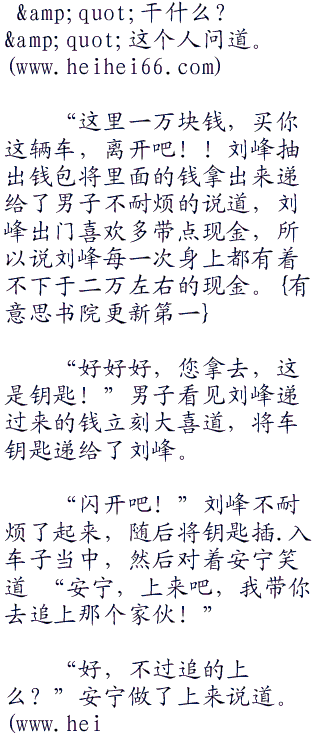 &amp;quot;干什么?
&amp;quot;这个人问道。
(www.heihei66.com)
“这里一万块钱，买你
这辆车，离开吧！！刘峰抽
出钱包将里面的钱拿出来递
给了男子不耐烦的说道，刘
峰出门喜欢多带点现金，所
以说刘峰每一次身上都有着
不下于二万左右的现金。{有
意思书院更新第一}
“好好好，您拿去，这
是钥匙！”男子看见刘峰递
过来的钱立刻大喜道，将车
钥匙递给了刘峰。
“闪开吧！”刘峰不耐
烦了起来，随后将钥匙插.入
车子当中，然后对着安宁笑
道 “安宁，上来吧，我带你
去追上那个家伙！”
“好，不过追的上
么？”安宁做了上来说道。
(www.hei